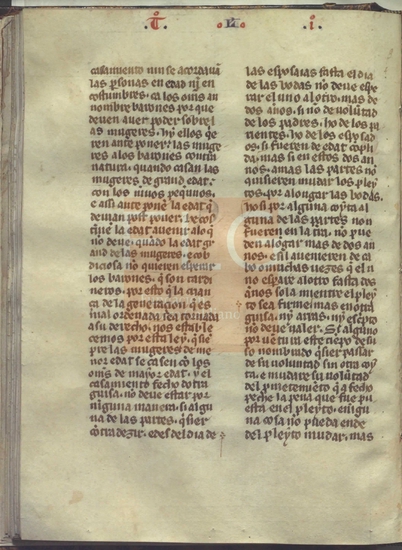 T · L · I
casamiento nin se acordauã
las p̃sonas en edad nj en
costumbres. ca los om̃s an
nombre barones por que
deuen auer poder sobre l
as mugeres. hy ellos q̃e
ren ante poner las muge
res a los barones contra
natura. quando casan las
mugeres de grand edat.
con los njnos pequños.
e assi ante ponẽ la edat q̃
deuian post poner. De cos
q̃ue la edat auenir alo q̃
no deue. quãdo la edat gr
and de las mugeres. e cob
diciosa no quieren esperar
los barones. q̃ son tardi
neros. por esto q̃ la cian
ca de la generacion q̃ es
mal ordenada sea tornada
a su derecho. nos estable
cemos por esta ley. que siẽ
pre las mugeres de me
nor edat se casen cõ los
om̃s de mayor edat. y el
casamiento fecho dotra
guisa. no deue estar por
nj̃guna manera. si algu
na de las partes. q̃sier
cõtra dezir. e des del dia de
las esposaias fasta el dia
de las bodas no deue espe
rar el uno al otro. mas de
dos anos. si no de volũtad
de los padres. ho de los pa
rientes. ho de los esposad
os. si fueren de edat cõpli
da. mas si en estos dos an
nos. amas las partes no
quisieren mudar los pley
tos. por alongar las bodas.
ho si por alguna coyta al
guna de las partes non
fueren en la tira. no pue
den alogar mas de dos an
nos. e si auenieren de ca
bo muchas uezes q̃ el n
no espare al otro fasta dos
años sola mientre el pley
to sea firme. mas en otra
guisa. ny arras. ny escpto
no deue ualer. Si alguno
por uẽtura este tienpo de su
so nombrado q̃sier passar
de su voluntad sin otra coy
ta. e mudare su volũtad
del p̃metemiẽto q̃ a fecho
peche la pena que fue pu
esta en el pleyto. e nj̃gu
na cosa no pueda ende
del pleyto mudar. mas